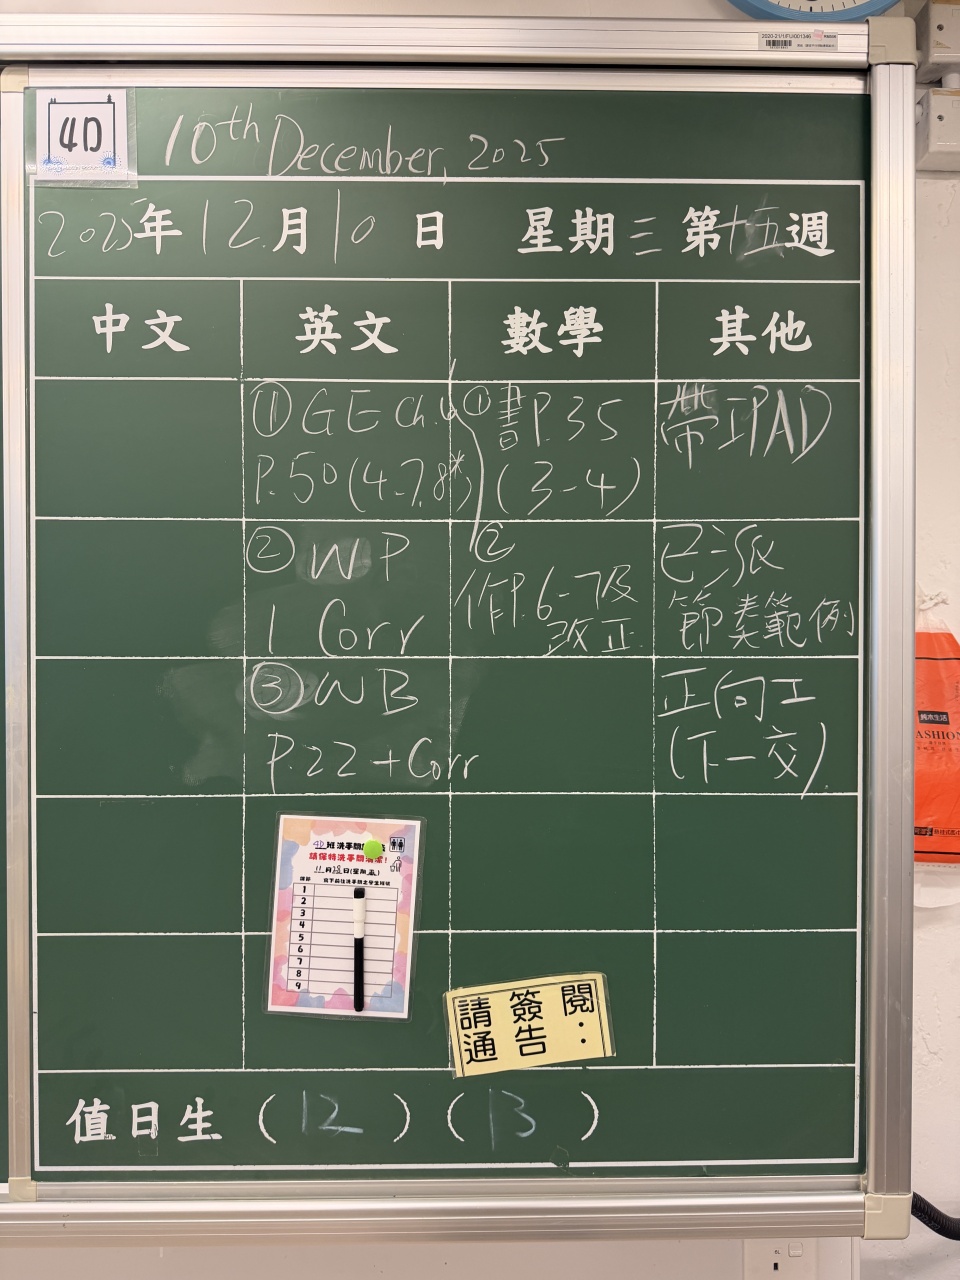 4D
10th December, 2025
2025年12月10日 星期三 第十五週
中文 英文 數學 其他
① GE Ch.6
P.50 (4-7,8*)
② WP
1 Corr
③ WB
P.22 + Corr
① 書P.35
(3-4)
②
作P.6-7及
改正
帶IPAD
已派
節奏範例
正向工
(下一交)
4D班洗手間
請保持洗手間清潔!
11月28日(星期五)
1
2
3
4
5
6
7
8
9
請簽閱
通告:
值日生 (12) (13)
2020-21/1/FU/001346
純木生活
FASHION